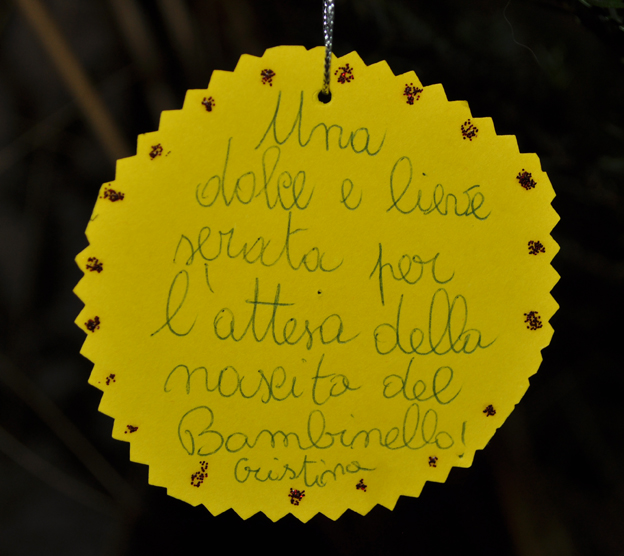 Una
dolce e lieve
serata per
l'attesa della
nascita del
Bambinello!
Cristina